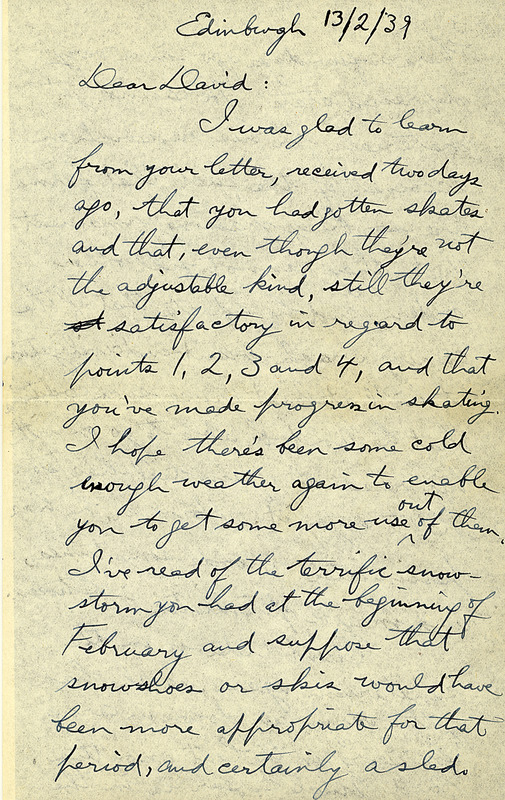 Edinburgh 13/2/39
Dear David:
I was glad to learn
from your letter, received two days
ago, that you had gotten skates
and that, even though they're not
the adjustable kind, still they're
satisfactory in regard to
points 1, 2, 3 and 4, and that
you've made progress in skating.
I hope there's been some cold
enough weather again to enable
you to get some more use out of them.
I've read of the terrific snow-
storm you had at the beginning of
February and suppose that
snowshoes or skis would have
been more appropriate for that
period, and certainly a sled.